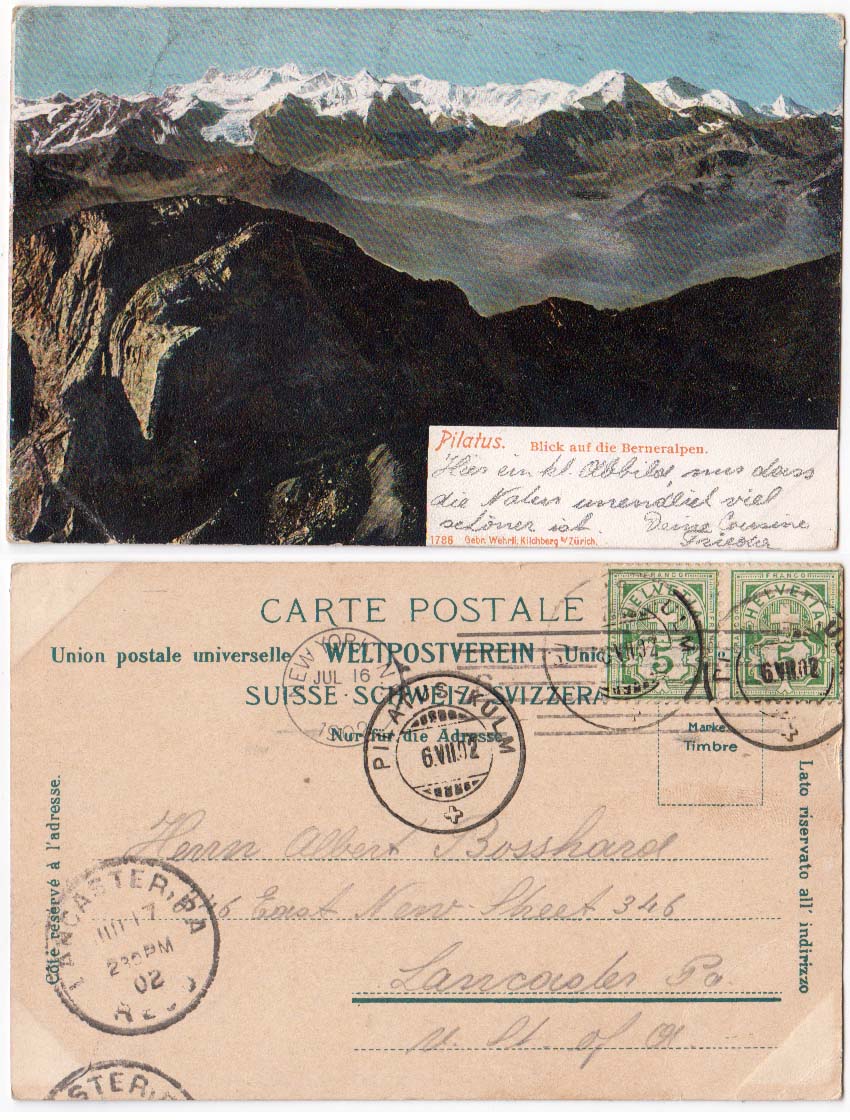 Pilatus. Blick auf die Berneralpen.
Hier ein kl. Abbild, nur dass
die Natur unendlich viel
schöner ist. Deine Cousine
Frieda
1786 Gebr. Wehrli, Kilchberg b/Zürich.
CARTE POSTALE
Union postale universelle WELTPOSTVEREIN Unio
SUISSE SCHWEIZ SVIZZERA
Nur für die Adresse
Côté réservé à l'adresse.
Lato riservato all' indirizzo
Marke
Timbre
FRANCO
HELVETIA
5
FRANCO
HELVETIA
5
NEW YORK, N.Y.
JUL 16
1902
PILATUS-KULM
6.VII.02
KULM
6.VII.02
6.VII.02
Herrn Albert Bosshard
346 East New-Street 346
Lancaster Pa.
U. St. of A.
LANCASTER, PA
JUL 17
230PM
02
REC'D
ASTER, P